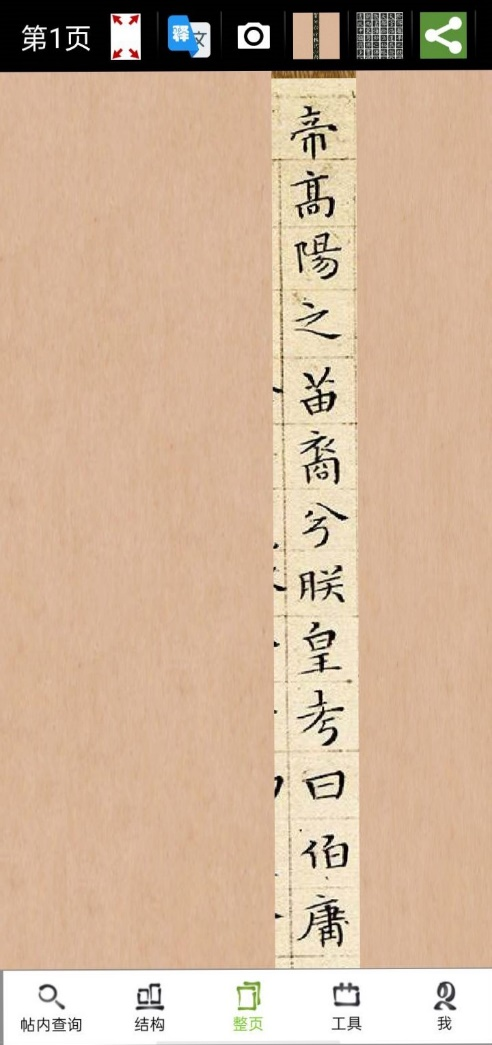 第1页
释文
帝高陽之苗裔兮朕皇考曰伯庸
帖内查询
结构
整页
工具
我